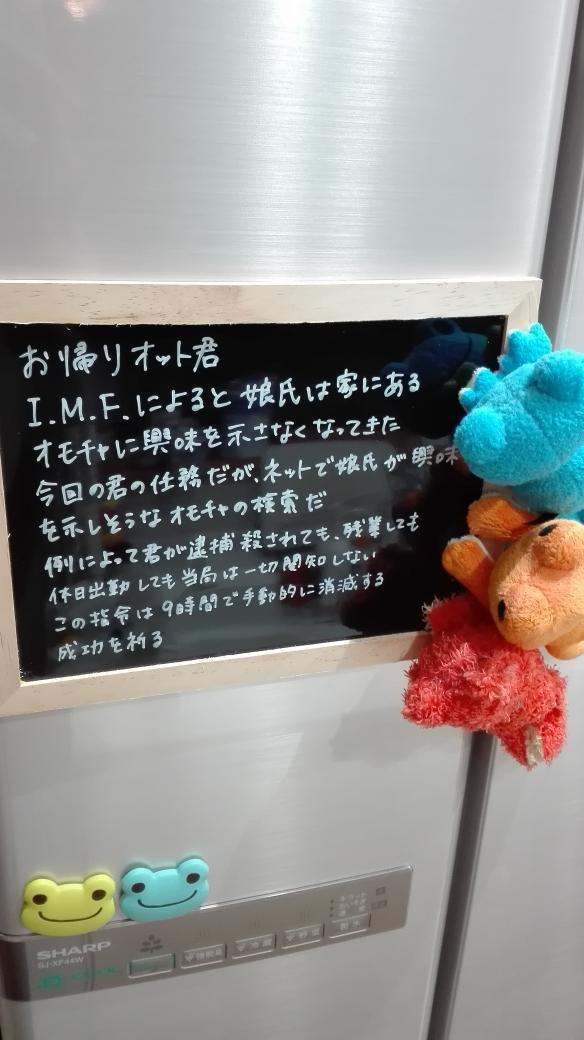 お帰りオット君
I.M.F.によると娘氏は家にある
オモチャに興味を示さなくなってきた
今回の君の任務だが、ネットで娘氏が興味
を示しそうなオモチャの検索だ
例によって君が逮捕殺されても、残業しても
休日出勤しても当局は一切関知しない
この指令は9時間で手動的に消滅する
成功を祈る
SHARP
SJ-XF44W
冷蔵
野菜
製氷